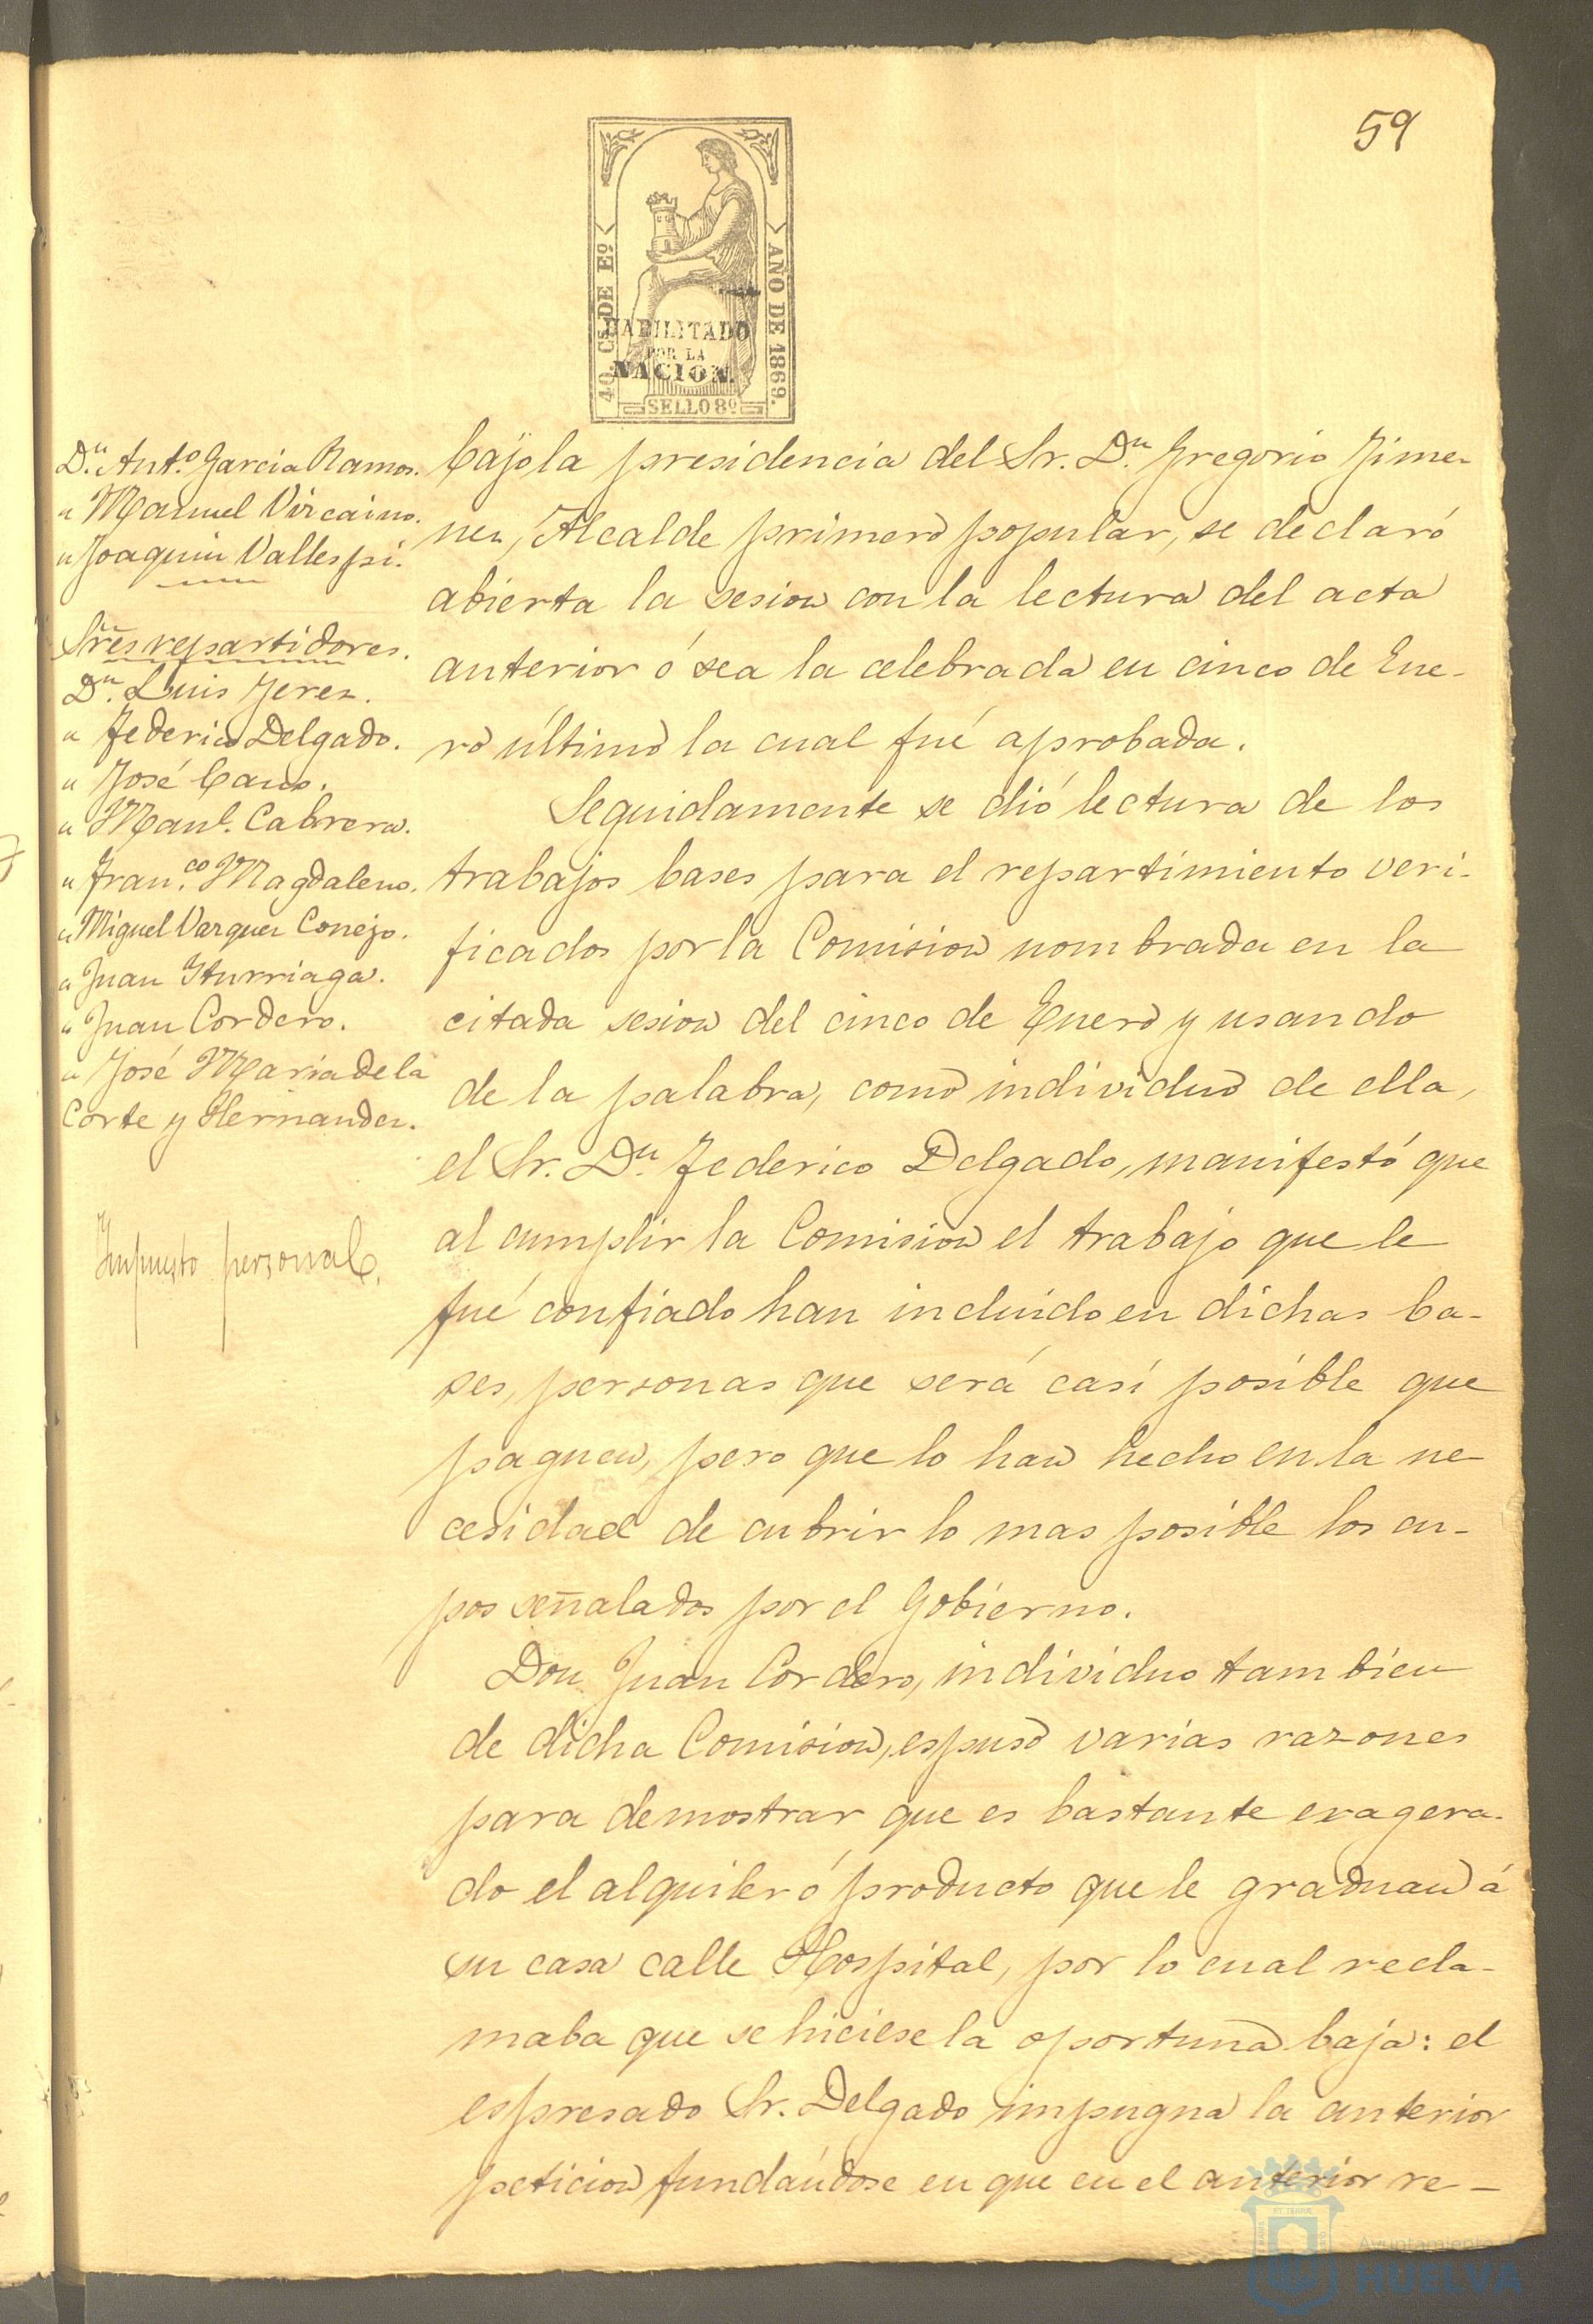 59
40 Cs. DE Eº
AÑO DE 1869.
HABILITADO
POR LA
NACION.
SELLO 8º
Dn. Anto. Garcia Ramos.
" Manuel Vizcaino.
" Joaquin Vallespi.
Sres repartidores.
Dn. Luis Jerez.
" Federico Delgado.
" José Cano.
" Manl. Cabrera.
" Franco. Magdaleno.
" Miguel Vazquez Conejo.
" Juan Yturriaga.
" Juan Cordero.
" José Maria de la
Corte y Hernandez.
Impuesto personal.
bajo la presidencia del Sr. Dn. Gregorio Jime-
nez, Alcalde primero popular, se declaró
abierta la sesion con la lectura del acta
anterior ó sea la celebrada en cinco de Ene-
ro último la cual fué aprobada.
Seguidamente se dió lectura de los
trabajos bases para el repartimiento veri-
ficados por la Comision nombrada en la
citada sesion del cinco de Enero y usando
de la palabra, como individuo de ella,
el Sr. Dn. Federico Delgado, manifestó que
al cumplir la Comision el trabajo que le
fué confiado han incluido en dichas ba-
ses, personas que será casi posible que
paguen, pero que lo han hecho en la ne-
cesidad de cubrir lo mas posible los cu-
pos señalados por el Gobierno.
Don Juan Cordero, individuo tambien
de dicha Comision, espuso varias razones
para demostrar que es bastante exagera-
do el alquiler ó producto que le graduan á
su casa calle Hospital, por lo cual recla-
maba que se hiciese la oportuna baja: el
espresado Sr. Delgado impugna la anterior
peticion fundándose en que en el anterior re-
Ayuntamiento
HUELVA